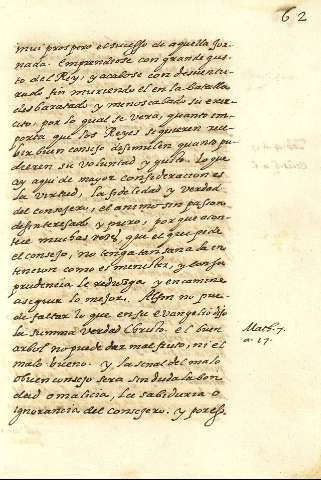 62
mui prospero el sucesso de aquella Jor
nada. Emprendiose con grande gus
to del Rey, y acabose con desventu
rado fin muriendo el en la batalla
desbaratado, y menoscabado su exer
cito, por lo qual se vera, quanto im
porta que los Reyes si quieren rece
bir buen consejo dissimulen quanto pu
dieren su voluntad y gusto. Lo que
ay aqui de mayor consideracion es
la virtud, la fidelidad y verdad
del consejero, el animo sin passion
desinteresado y puro, por que acon
tece muchas vezes, que el que pide
el consejo, no tenga tan sana la in
tencion como es menester, y con su
prudencia le reduzga y encamine
a seguir lo mejor. Al fin no pue
de faltar lo que en su evangelio dijo
la summa verdad Christo. el buen
arbol no puede dar mal fruto, ni el
malo bueno. y la señal del malo
o buen consejo sera sin duda la bon
dad o malicia, la sabiduria o
ignorancia del consejero. y por esso
Math. 7.
a. 17.